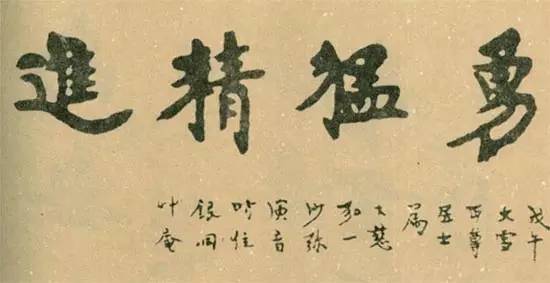 勇猛精進
戊午
大雪
丏尊
居士
属
大慈
弘一
沙弥
演音
時住
銀洞
叶庵